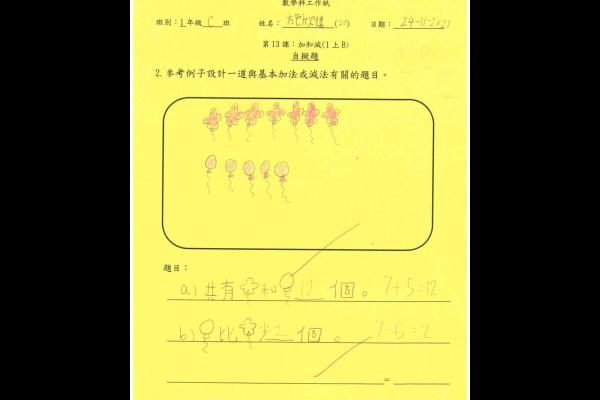 數學科工作紙
班別：1年級 C 班 姓名： (20) 日期：24-11-2021
第13課：加和減(1上B)
自擬題
2. 參考例子設計一道與基本加法或減法有關的題目。
題目：
a) 共有和12個。7+5=12
b) 比少2個。7-5=2
=